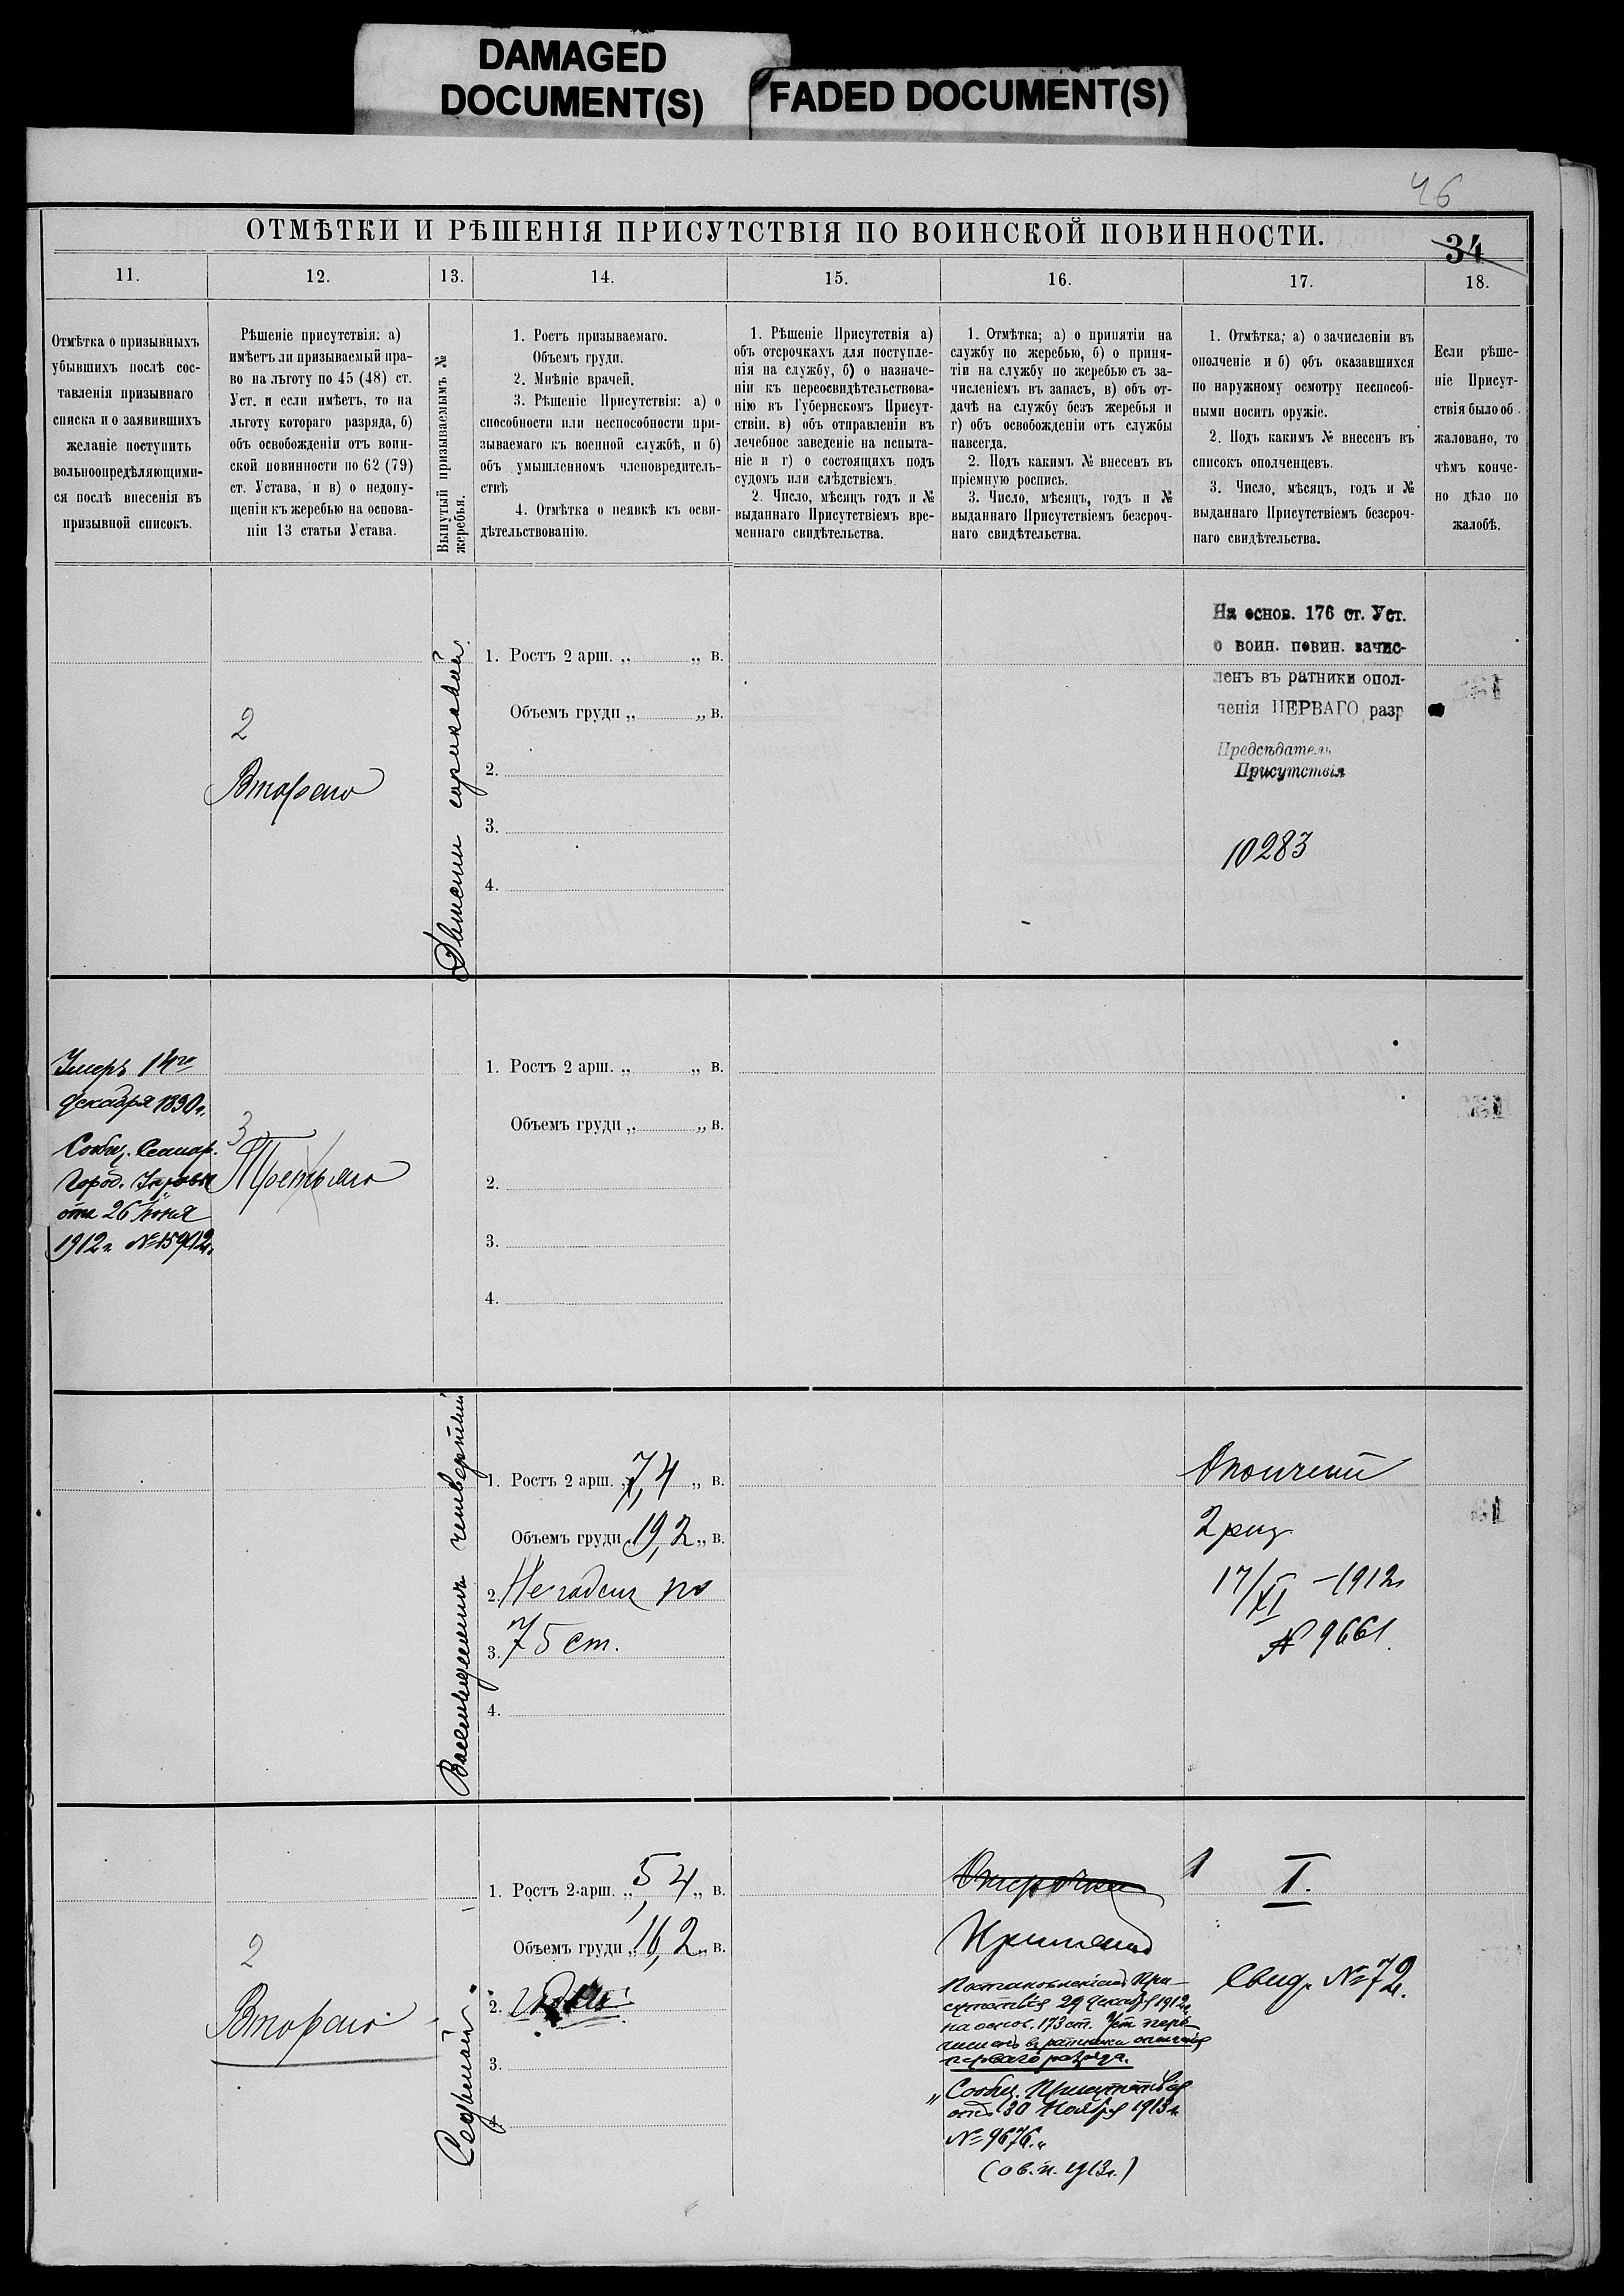 DAMAGED
DOCUMENT(S)
FADED DOCUMENT(S)
46
ОТМѢТКИ И РѢШЕНІЯ ПРИСУТСТВІЯ ПО ВОИНСКОЙ ПОВИННОСТИ.
34
11.
12.
13.
14.
15.
16.
17.
18.
Отмѣтка о призывныхъ
убывшихъ послѣ сос-
тавленія призывнаго
списка и о заявившихъ
желаніе поступить
вольноопредѣляющими-
ся послѣ внесенія въ
призывной списокъ.
Рѣшеніе присутствія: а)
имѣетъ ли призываемый пра-
во на льготу по 45 (48) ст.
Уст. и если имѣетъ, то на
льготу котораго разряда, б)
объ освобожденіи отъ воин-
ской повинности по 62 (79)
ст. Устава, и в) о недопу-
щеніи къ жеребью на основа-
ніи 13 статьи Устава.
Вынутый призываемымъ №
жеребья.
1. Ростъ призываемаго.
Объемъ груди.
2. Мнѣніе врачей.
3. Рѣшеніе Присутствія: а) о
способности или неспособности при-
зываемаго къ военной службѣ, и б)
объ умышленномъ членовредитель-
ствѣ
4. Отмѣтка о неявкѣ къ осви-
дѣтельствованію.
1. Рѣшеніе Присутствія а)
объ отсрочкахъ для поступле-
нія на службу, б) о назначе-
ніи къ переосвидѣтельствова-
нію въ Губернскомъ Присут-
ствіи. в) объ отправленіи въ
лечебное заведеніе на испыта-
ніе и г) о состоящихъ подъ
судомъ или слѣдствіемъ.
2. Число, мѣсяцъ годъ и №
выданнаго Присутствіемъ вре-
меннаго свидѣтельства.
1. Отмѣтка; а) о принятіи на
службу по жеребью, б) о приня-
тіи на службу по жеребью съ за-
численіемъ въ запасъ, в) объ от-
дачѣ на службу безъ жеребья и
г) объ освобожденіи отъ службы
навсегда.
2. Подъ какимъ № внесенъ въ
пріемную роспись.
3. Число, мѣсяцъ, годъ и №
выданнаго Присутствіемъ безсроч-
наго свидѣтельства.
1. Отмѣтка; а) о зачисленіи въ
ополченіе и б) объ оказавшихся
по наружному осмотру неспособ-
ными носить оружіе.
2. Подъ какимъ № внесенъ въ
списокъ ополченцевъ.
3. Число, мѣсяцъ, годъ и №
выданнаго Присутствіемъ безсроч-
наго свидѣтельства.
Если рѣше-
ніе Присут-
ствія было об-
жаловано, то
чѣмъ конче-
но дѣло по
жалобѣ.
2
Втораго
Двѣсти сороковой
1. Ростъ 2 арш. „ „ в.
Объемъ груди „ „ в.
2.
3.
4.
На основ. 176 ст. Уст.
о воин. повин. зачис-
ленъ въ ратники опол-
ченія ПЕРВАГО разр
Предсѣдатель
Присутствія
10283
Умеръ 14го
декабря 1890 г.
Сообщ. Самар.
Город. Управы
отъ 26 Іюня
1912 г. № 15942.
3
Третьяго
1. Ростъ 2 арш. „ „ в.
Объемъ груди „ „ в.
2.
3.
4.
Восемьдесятъ четвертый
1. Ростъ 2 арш. „ 7,4 „ в.
Объемъ груди „ 19,2 „ в.
2. Не годенъ по
3. 75 ст.
4.
Ополченіи
2 раз
17/XI – 1912
№ 9661.
2
Втораго
Седьмой
1. Ростъ 2 арш. „ 5,4 „ в.
Объемъ груди „ 16,2 „ в.
2. Годенъ
3.
4
Отсрочка
Принятъ
Постановленіемъ При-
сутствія 29 Декабря 1912 г.
на основ. 173 ст. Уст. пере-
численъ въ ратники ополченія
перваго разряда.
„ Сообщ. Присутствія
отъ 30 Ноября 1913 г.
№ 9676. „
(о в. п. 1913 г.)
1
I.
Свид. № 72.